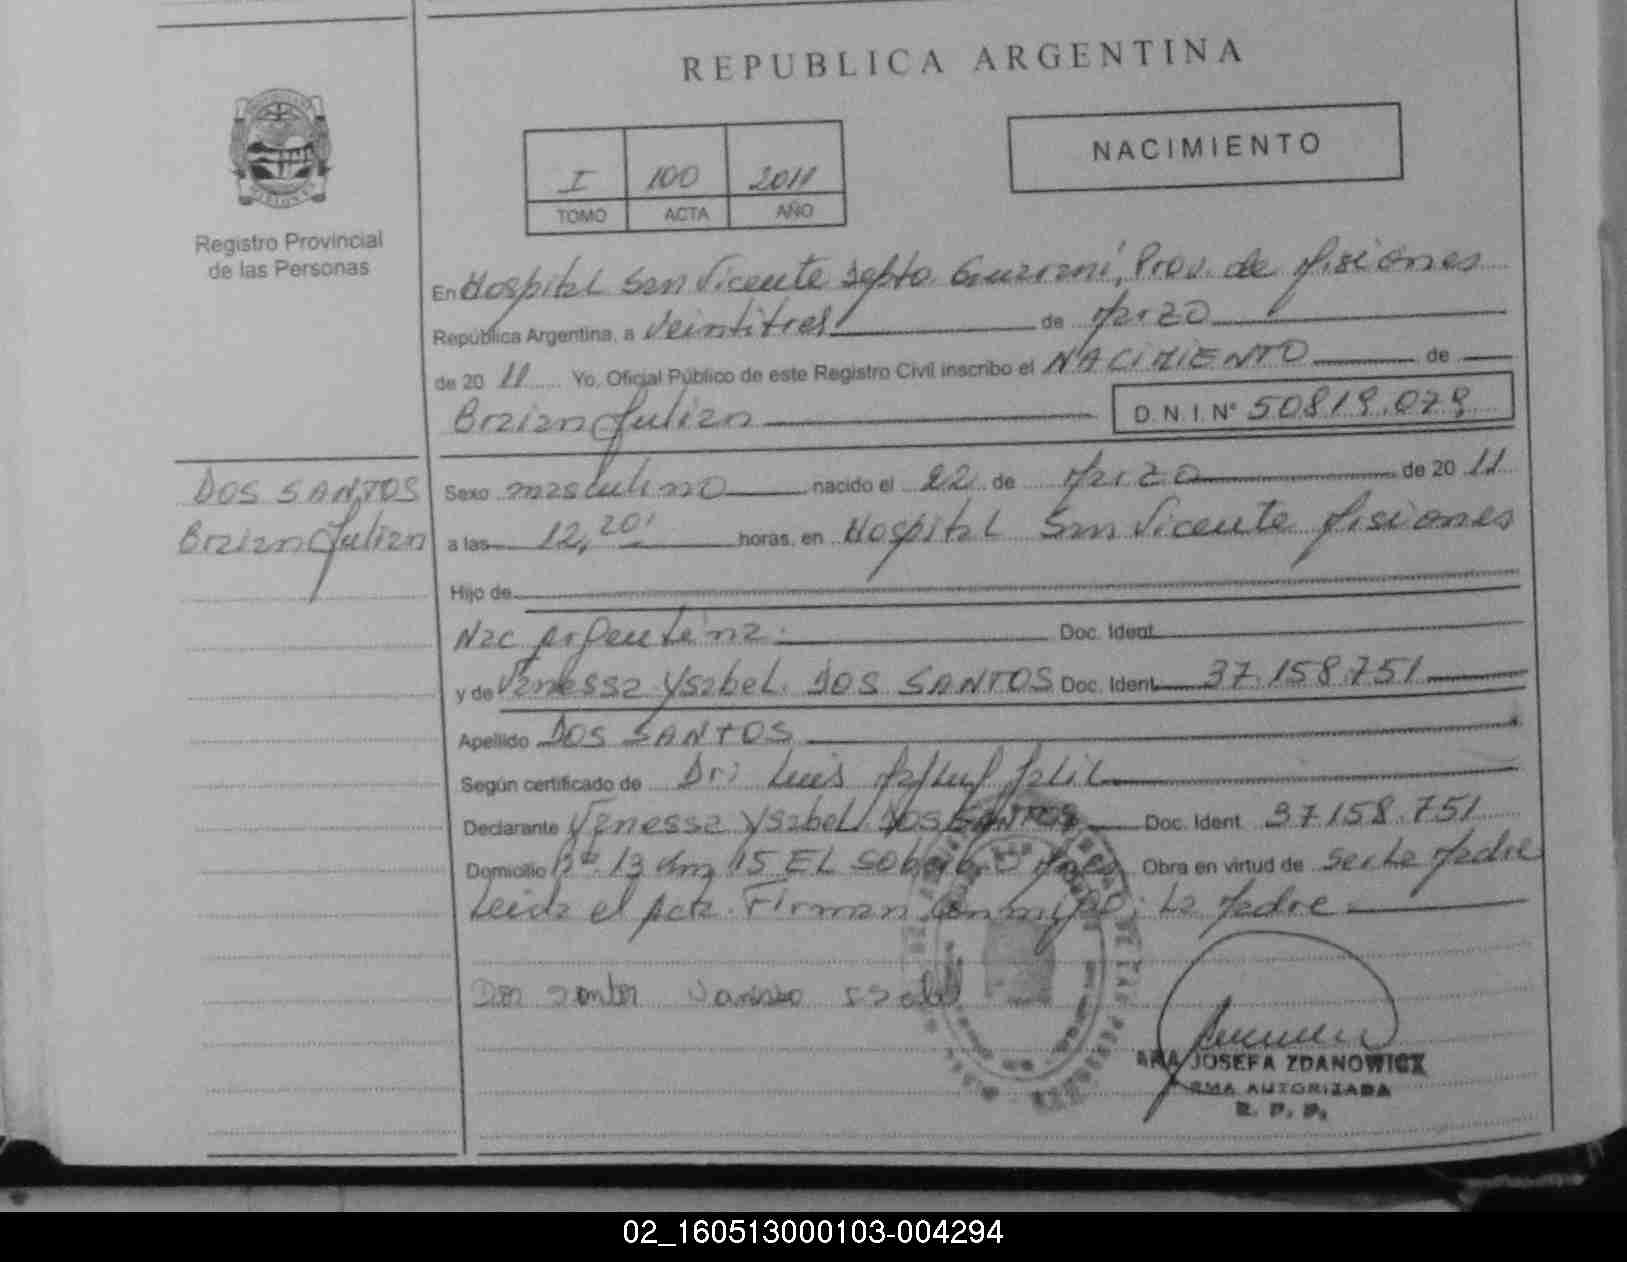 REPUBLICA ARGENTINA
NACIMIENTO
I 100 2011
TOMO ACTA AÑO
Registro Provincial
de las Personas
En Hospital San Vicente Depto. Guarani, Prov. de Misiones
República Argentina, a veintitres de Marzo
de 20 11 Yo, Oficial Público de este Registro Civil inscribo el NACIMIENTO de
Braian Julian D.N.I.Nº 50819.079
DOS SANTOS
Braian Julian
Sexo masculino nacido el 22 de Marzo de 20 11
a las 12,20' horas, en Hospital San Vicente Misiones
Hijo de
Nac Argentina. Doc. Ident.
y de Vanessa Ysabel. DOS SANTOS Doc. Ident. 37.158.751
Apellido DOS SANTOS
Según certificado de Dr: Luis Jalil
Declarante Vanessa Ysabel DOS SANTOS Doc. Ident. 37.158.751
Domicilio 13 Km 15 EL Soberbio Mnes Obra en virtud de ser La Madre
Leida el Acta. Firman Conmigo; La Madre
Dos Santos Vanessa
JOSEFA ZDANOWICZ
FIRMA AUTORIZADA
R. P. P.
02_160513000103-004294